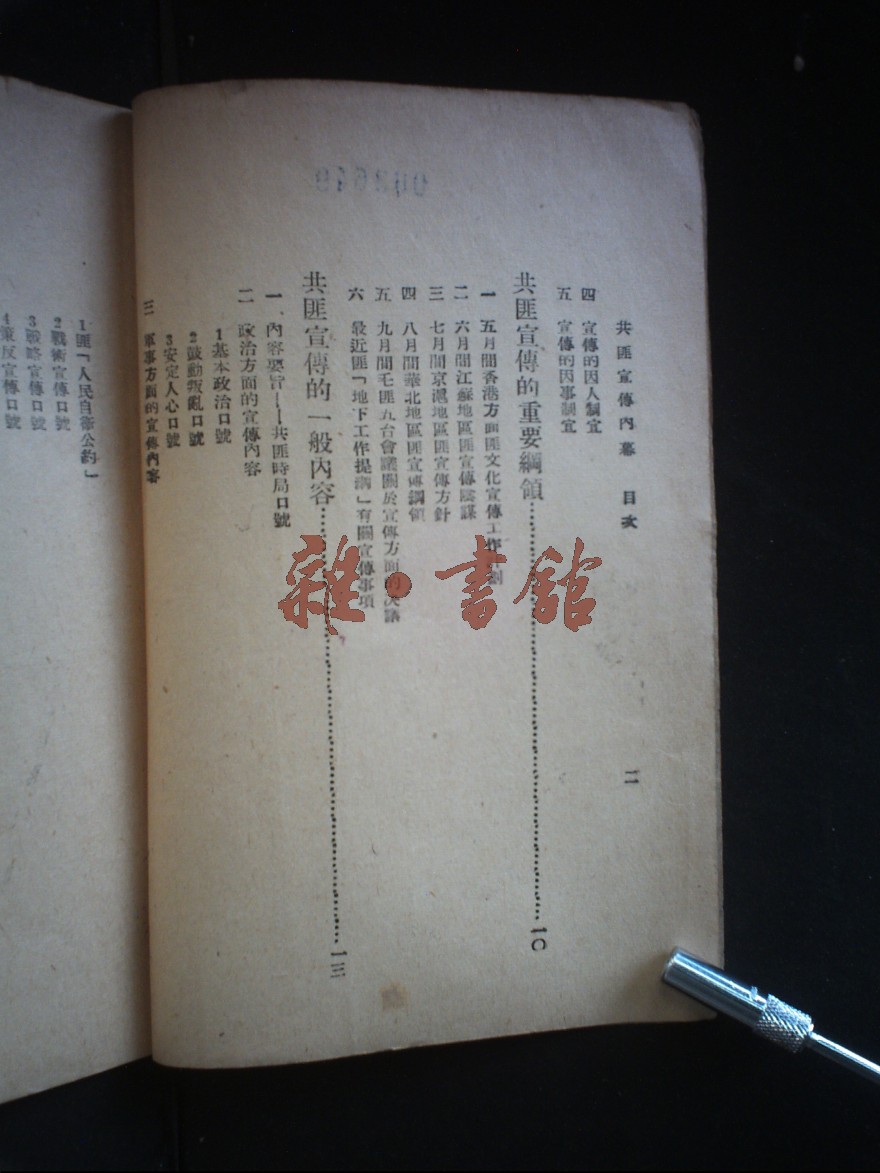 共匪宣傳內幕 目次
二
四 宣傳的因人制宜
五 宣傳的因事制宜
共匪宣傳的重要綱領……一〇
一 五月間香港方面匪文化宣傳工作計劃
二 六月間江蘇地區匪宣傳陰謀
三 七月間京滬地區匪宣傳方針
四 八月間華北地區匪宣傳綱領
五 九月間毛匪五台會議關於宣傳方面的決議
六 最近匪「地下工作提綱」有關宣傳事項
共匪宣傳的一般內容……一三
一、內容要旨——共匪時局口號
二 政治方面的宣傳內容
1基本政治口號
2鼓動叛亂口號
3安定人心口號
三 軍事方面的宣傳內容
1匪「人民自衛公約」
2戰術宣傳口號
3戰略宣傳口號
4策反宣傳口號
002649
雜·書館